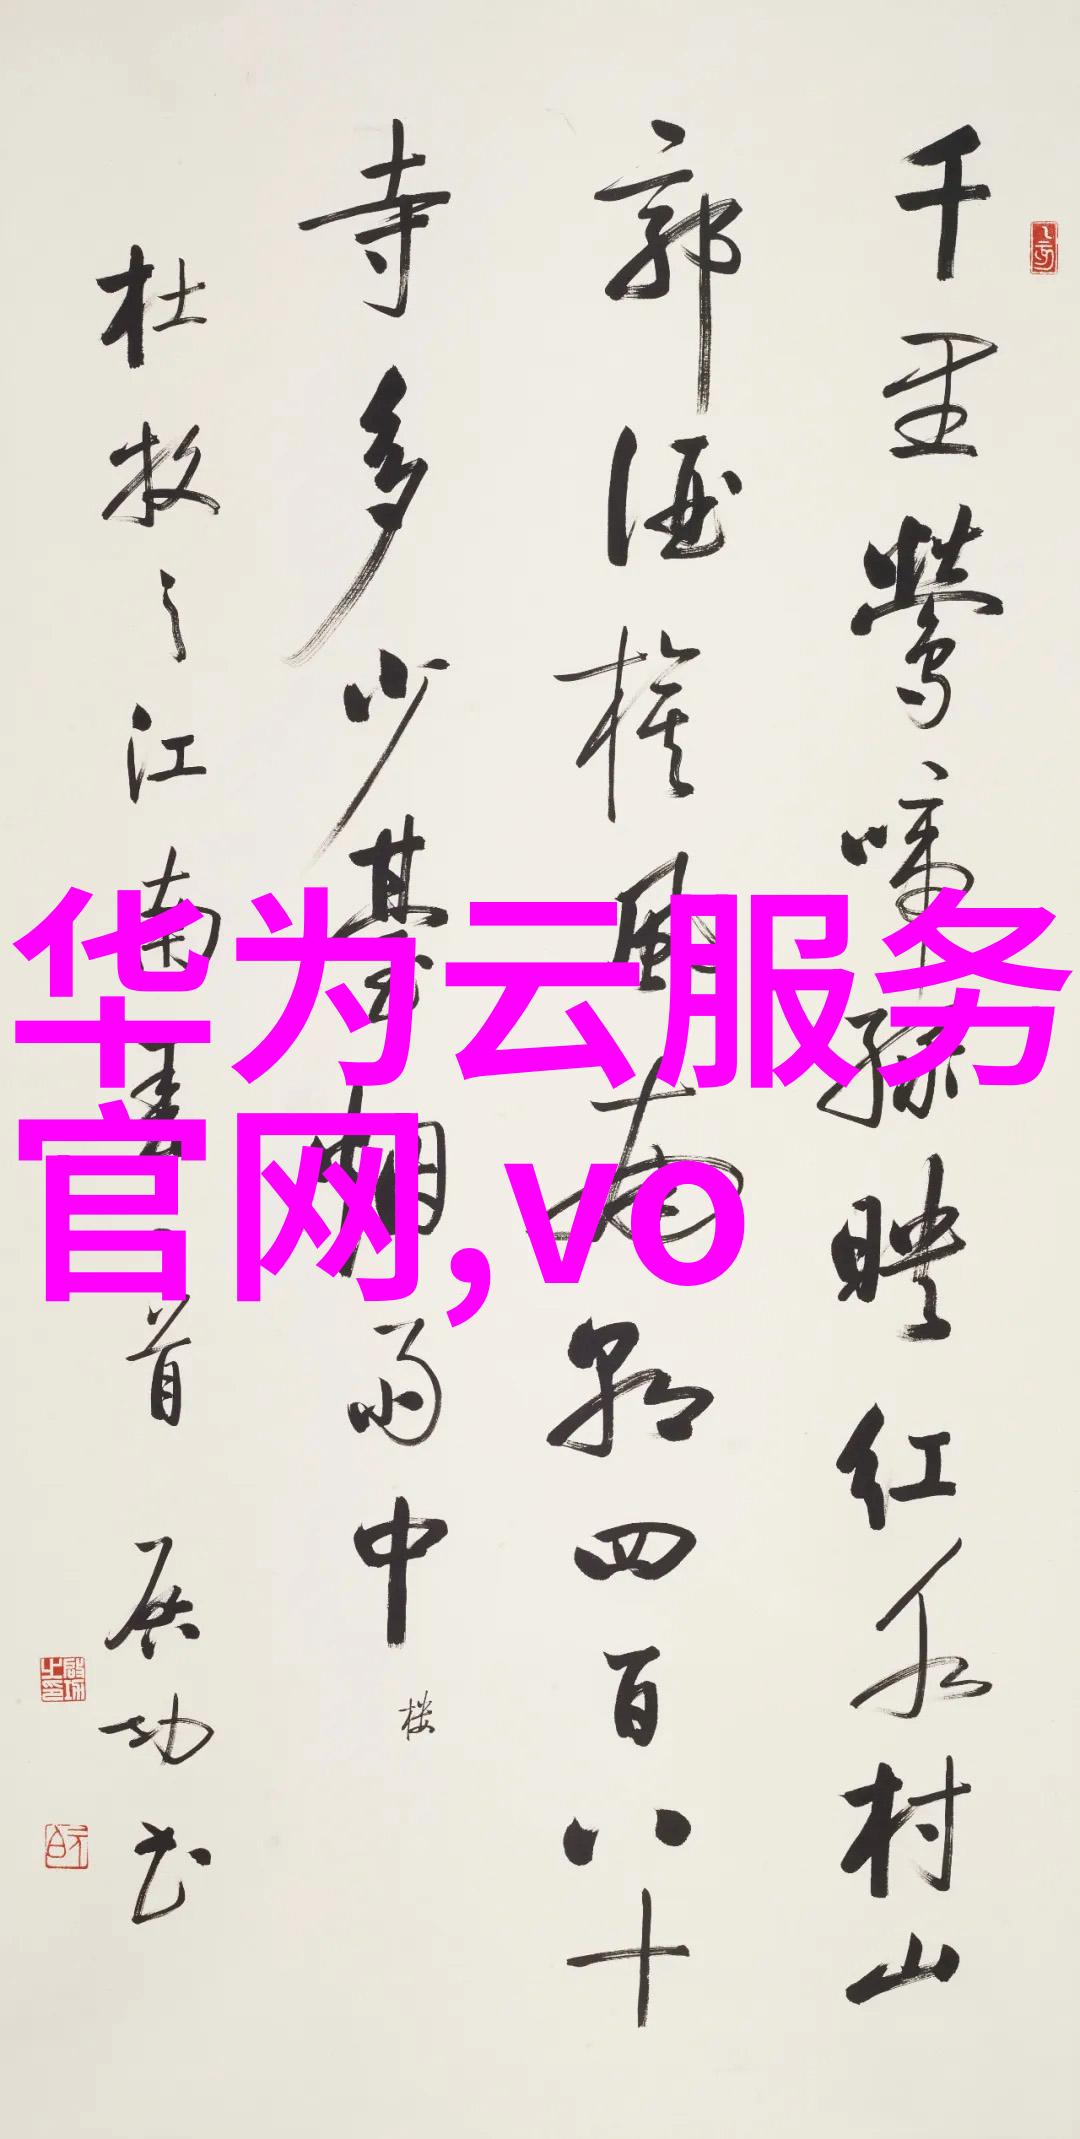 千里鶯啼綠映红水村山
郭酒旗風南朝四百八十
寺多少臺烟雨中
楼
杜牧之江南春首 启功书
华为云服务
官网,vo